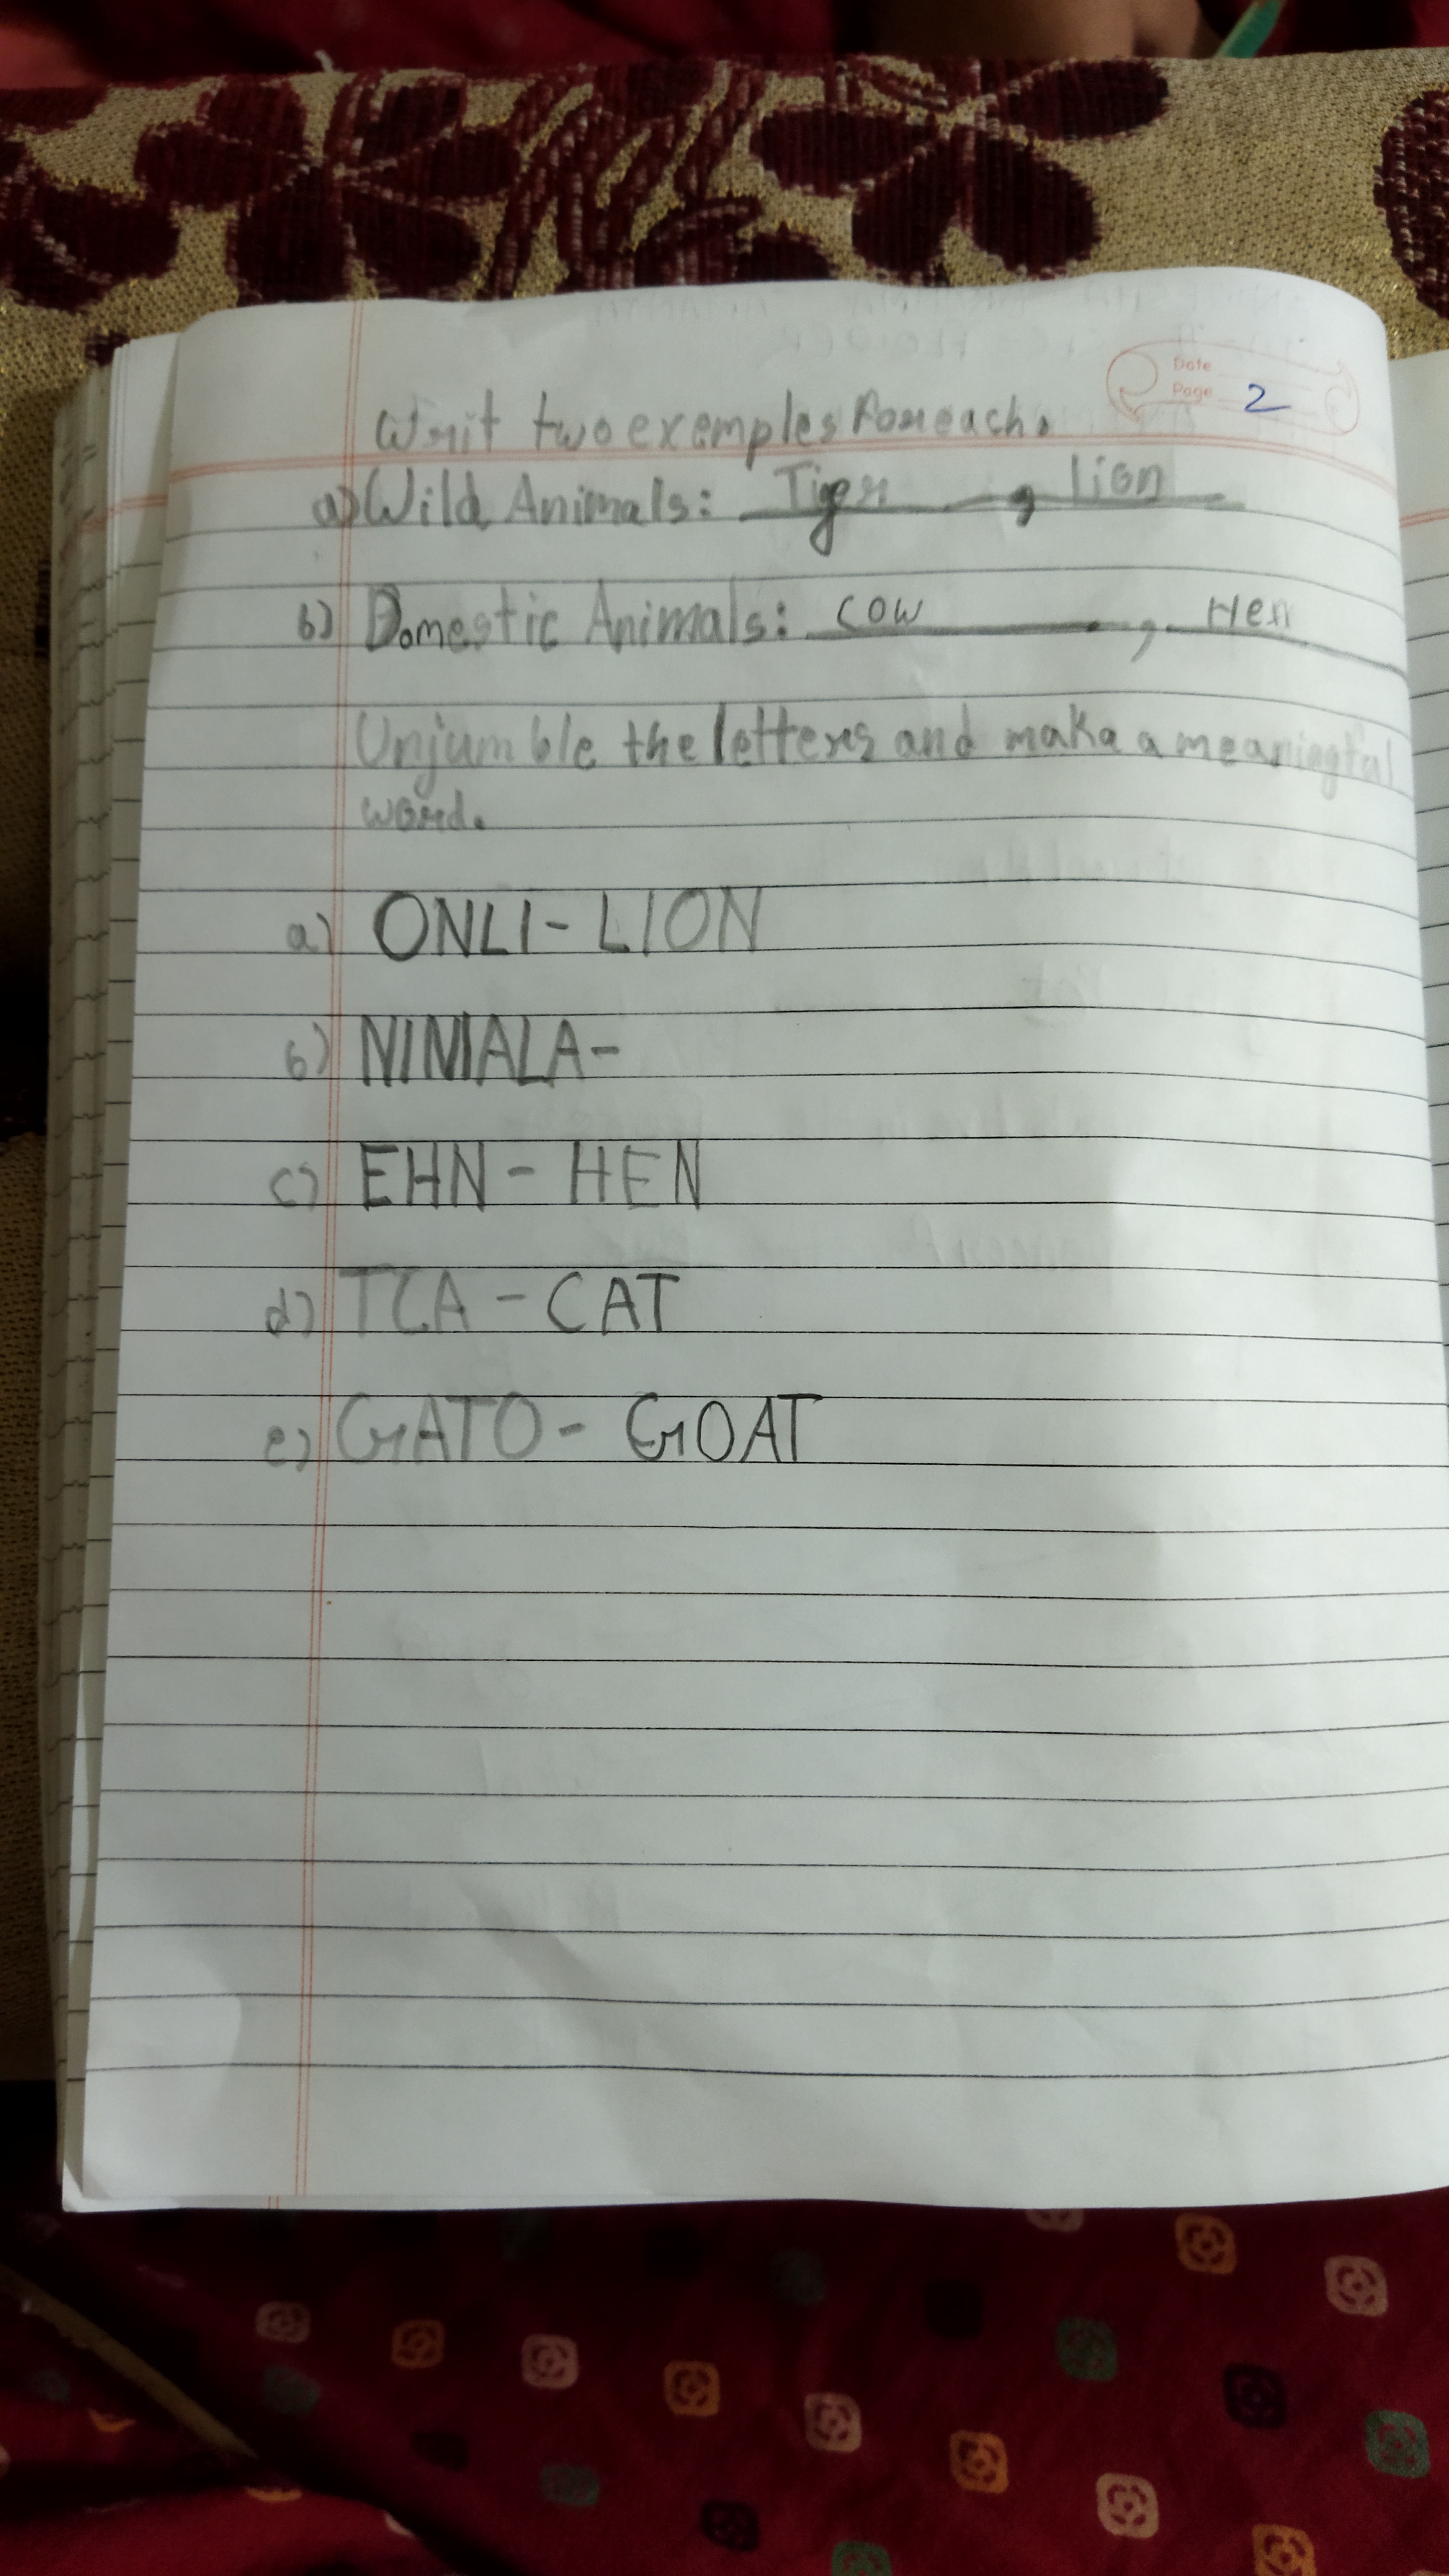 Date
Page 2
Writ two exemples For each.
a) Wild Animals: Tiger, lion
b) Domestic Animals: cow, Hen
Unjumble the letters and maka a meaningful
word.
a) ONLI - LION
b) NIMALA -
c) EHN - HEN
d) TCA - CAT
e) GATO - GOAT